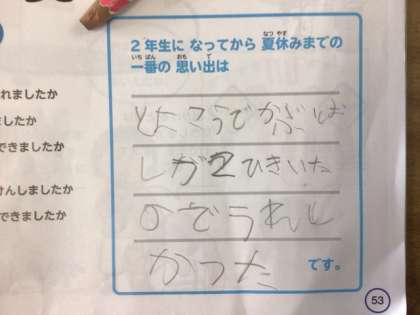 なつ やす
2年生に なってから 夏休みまでの
いち ばん おも で
一番の 思い出は
こうで かぶとむ
しが2ひきいた
のでうれし
かった です。
れましたか
ましたか
できましたか
けんしましたか
できましたか
53